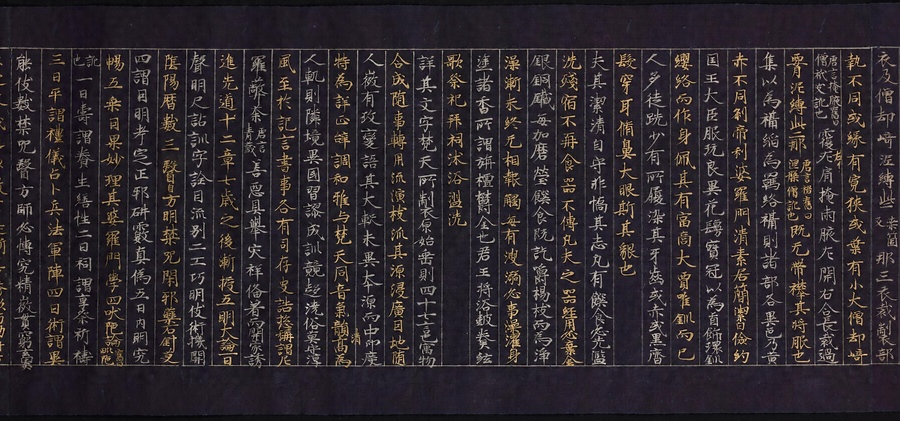 衣及僧却崎泥縛些那三衣裁製部
執不同或緣有寛狹或葉有小大僧却崎
唐言掩腋舊曰僧祇支訛也覆左肩掩兩腋左開右合長裁過
泥縛些那唐言裙舊曰涅槃僧訛也既无帶襻其將服也
集以為襵則諸部各異色乃黃
赤不同刹帝利婆羅門清素居簡潔白儉約
國王大臣服玩良異花鬘寶冠以為首飾環釧
纓絡而作身佩其有富商大賈唯釧而已
人多徒跣少有所履染其牙齒或赤或黒齊
髮穿耳脩鼻大眼斯其貌也
夫其潔清自守非憍其志凡有饌食必先盥
洗殘宿不再食器不傳之器經用必棄金
銀銅鐵每加磨瑩饌食既訖嚼楊枝而為淨
澡漱未終无相執觸每有溲溺必事澡濯身
塗諸香所謂栴檀鬱金也君王將浴鼓奏絃
歌祭祀拜祠沐浴盥洗
詳其文字梵天所製原始垂則四十七言寓物
合成隨事轉用流演枝派其源浸廣因地隨
人微有改變語其大較未異本源而中印度
特為詳正辭調和雅与梵天同音氣韻清高為
人軌則隣境異國習謬成訓競趍澆俗莫守淳
風至於記言書事各有司存史誥惣稱謂尼
羅蔽荼唐言青藏善惡具舉災祥俻著而開蒙誘
進先導十二章七歲之後漸授五明大論一曰
聲明釋詁訓字詮目流別二工巧明伎術機關
陰陽曆數三醫方明禁呪閑邪藥石針艾
四謂因明考定正邪研覈真偽五曰內明究
暢五乗因果妙理其婆羅門學四吠陀論
一曰壽謂養生繕性二曰祠謂享祭祈禱
三曰平謂禮儀占卜兵法軍陣四曰術謂異
能伎數禁呪醫方師必博究精微貫窮玄奧